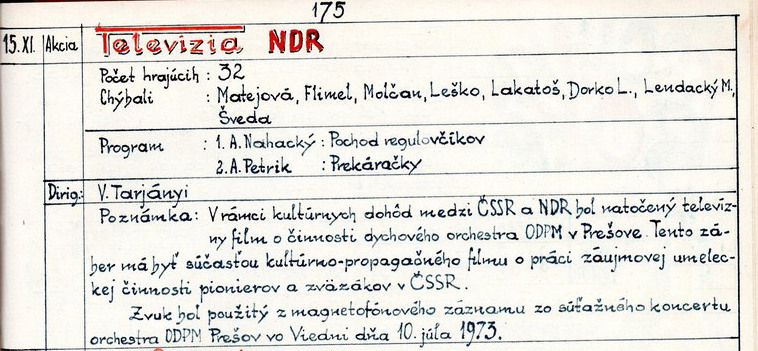 175
15.XI. Akcia Televízia NDR
Počet hrajúcich : 32
Chýbali : Matejová, Flimel, Molčan, Leško, Lakatoš, Dorko L., Lendacký M.,
Šveda
Program : 1. A. Nahacký : Pochod regulovčíkov
2. A. Petrik : Prekáračky
Dirig.: V. Tarjányi
Poznámka: V rámci kultúrnych dohôd medzi ČSSR a NDR bol natočený televíz-
ny film o činnosti dychového orchestra ODPM v Prešove. Tento zá-
ber má byť súčasťou kultúrno-propagačného filmu o práci záujmovej umelec-
kej činnosti pionierov a zväzákov v ČSSR.
Zvuk bol použitý z magnetofónového záznamu zo súťažného koncertu
orchestra ODPM Prešov vo Viedni dňa 10. júla 1973.